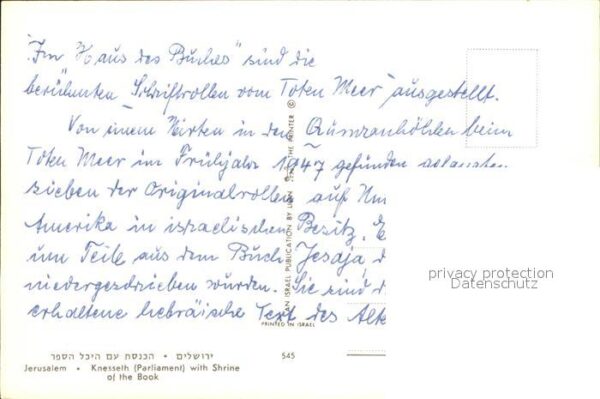 "Im Haus des Buches" sind die
berühmten Schriftrollen vom Toten Meer ausgestellt.
Von einem Hirten in den Qumranhöhlen beim
Toten Meer im Frühjahr 1947 gefunden gelangten
sieben der Originalrollen auf Um
Amerika in israelischen Besitz. E
um Teile aus dem Buch Jesaja, d
niedergeschrieben wurden. Sie sind d
erhaltene hebräische Text des Alte
AN ISRAEL PUBLICATION BY THE PRINTER ©
PRINTED IN ISRAEL
privacy protection
Datenschutz
ירושלים • הכנסת עם היכל הספר
545
Jerusalem • Knesseth (Parliament) with Shrine
of the Book